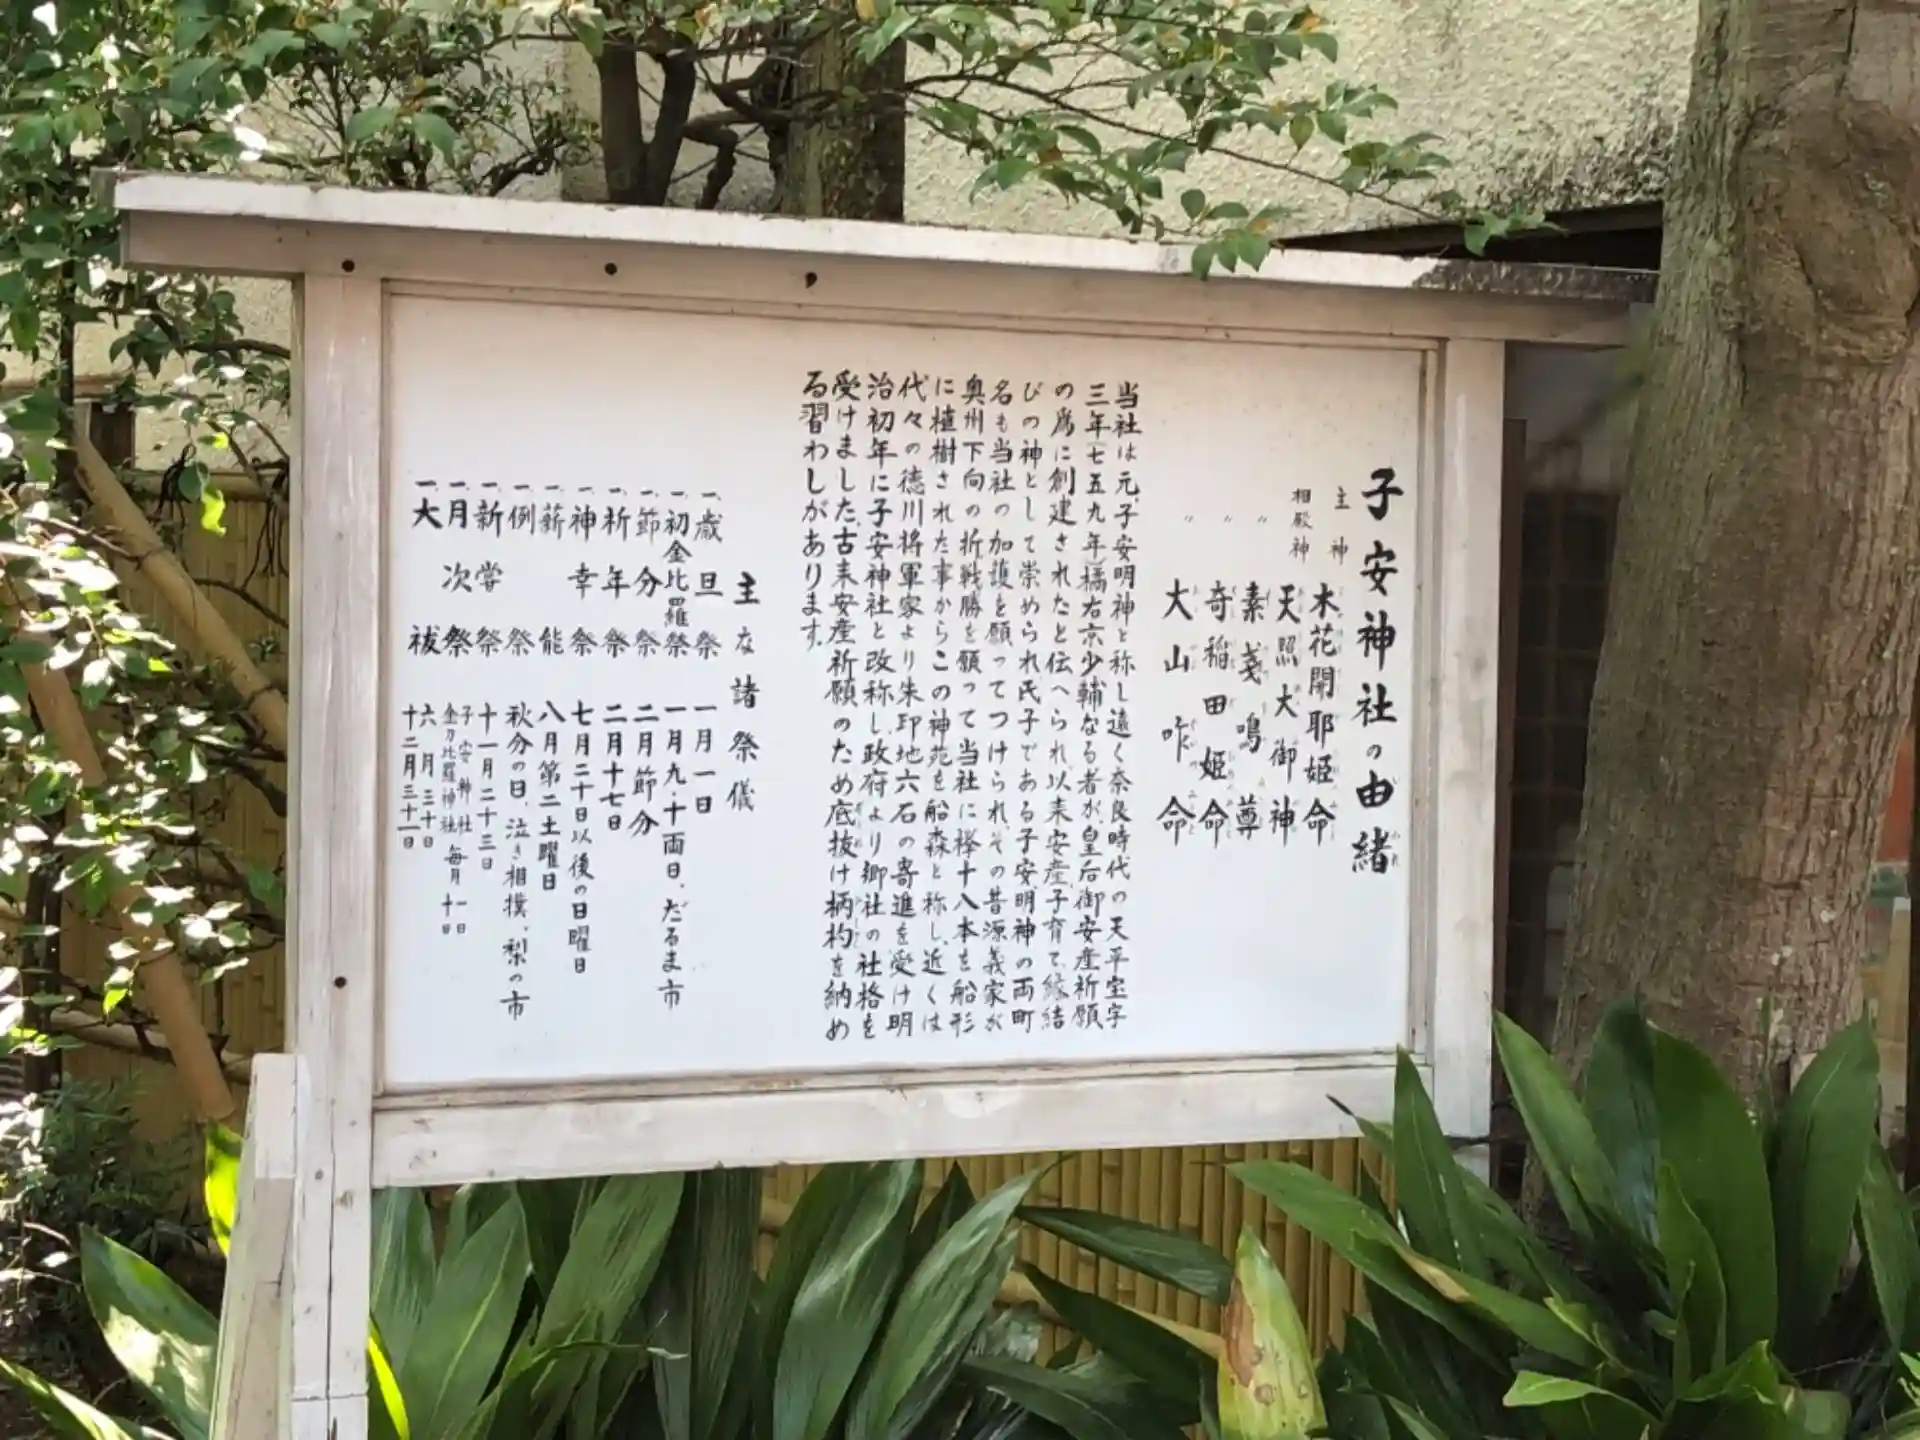 子安神社の由緒
主神 木花開耶姫命
相殿神 天照大御神
〃 素戔嗚尊
〃 奇稲田姫命
〃 大山咋命
当社は元、子安明神と称し遠く奈良時代の天平宝字
三年(七五九年)橘右京少輔なる者が、皇后御安産祈願
の為に創建されたと伝へられ、以来安産、子育て、縁結
びの神として崇められ氏子である子安、明神の両町
名も当社の加護を願ってつけられ、その昔源義家が
奥州下向の折、戦勝を願って当社に欅十八本を船形
に植樹された事からこの神苑を船森と称し、近くは
代々の徳川将軍家より朱印地六石の寄進を受け明
治初年に子安神社と改称し、政府より郷社の社格を
受けました。古来安産祈願のため底抜け柄杓を納め
る習わしがあります。
主な諸祭儀
一、歳旦祭 一月一日
一、初金比羅祭 一月九・十両日、だるま市
一、節分祭 二月節分
一、祈年祭 二月十七日
一、神幸祭 七月二十日以後の日曜日
一、薪能 八月第二土曜日
一、例祭 秋分の日、泣き相撲、梨の市
一、新嘗祭 十一月二十三日
一、月次祭 子安神社 毎月一日
金刀比羅神社 毎月十日
一、大祓 六月三十日
十二月三十一日